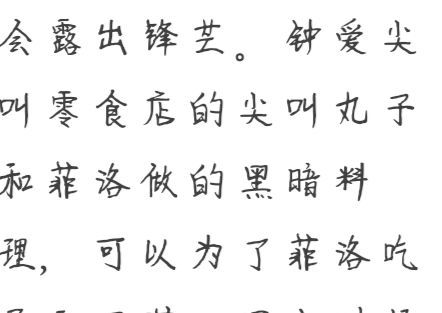 会露出锋芒。钟爱尖
叫零食店的尖叫丸子
和菲洛做的黑暗料
理，可以为了菲洛吃